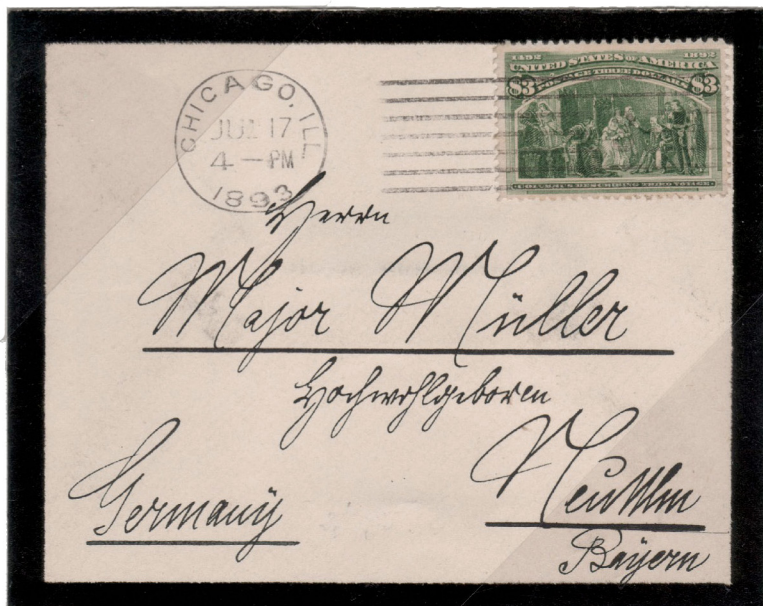 CHICAGO, ILL.
JUN 17
4 — PM
1893
1492 1892
UNITED STATES OF AMERICA
$3 POSTAGE THREE DOLLARS $3
COLUMBUS DESCRIBING THIRD VOYAGE
Herrn
Major Müller
Hochwohlgeboren
Germany
Bayern